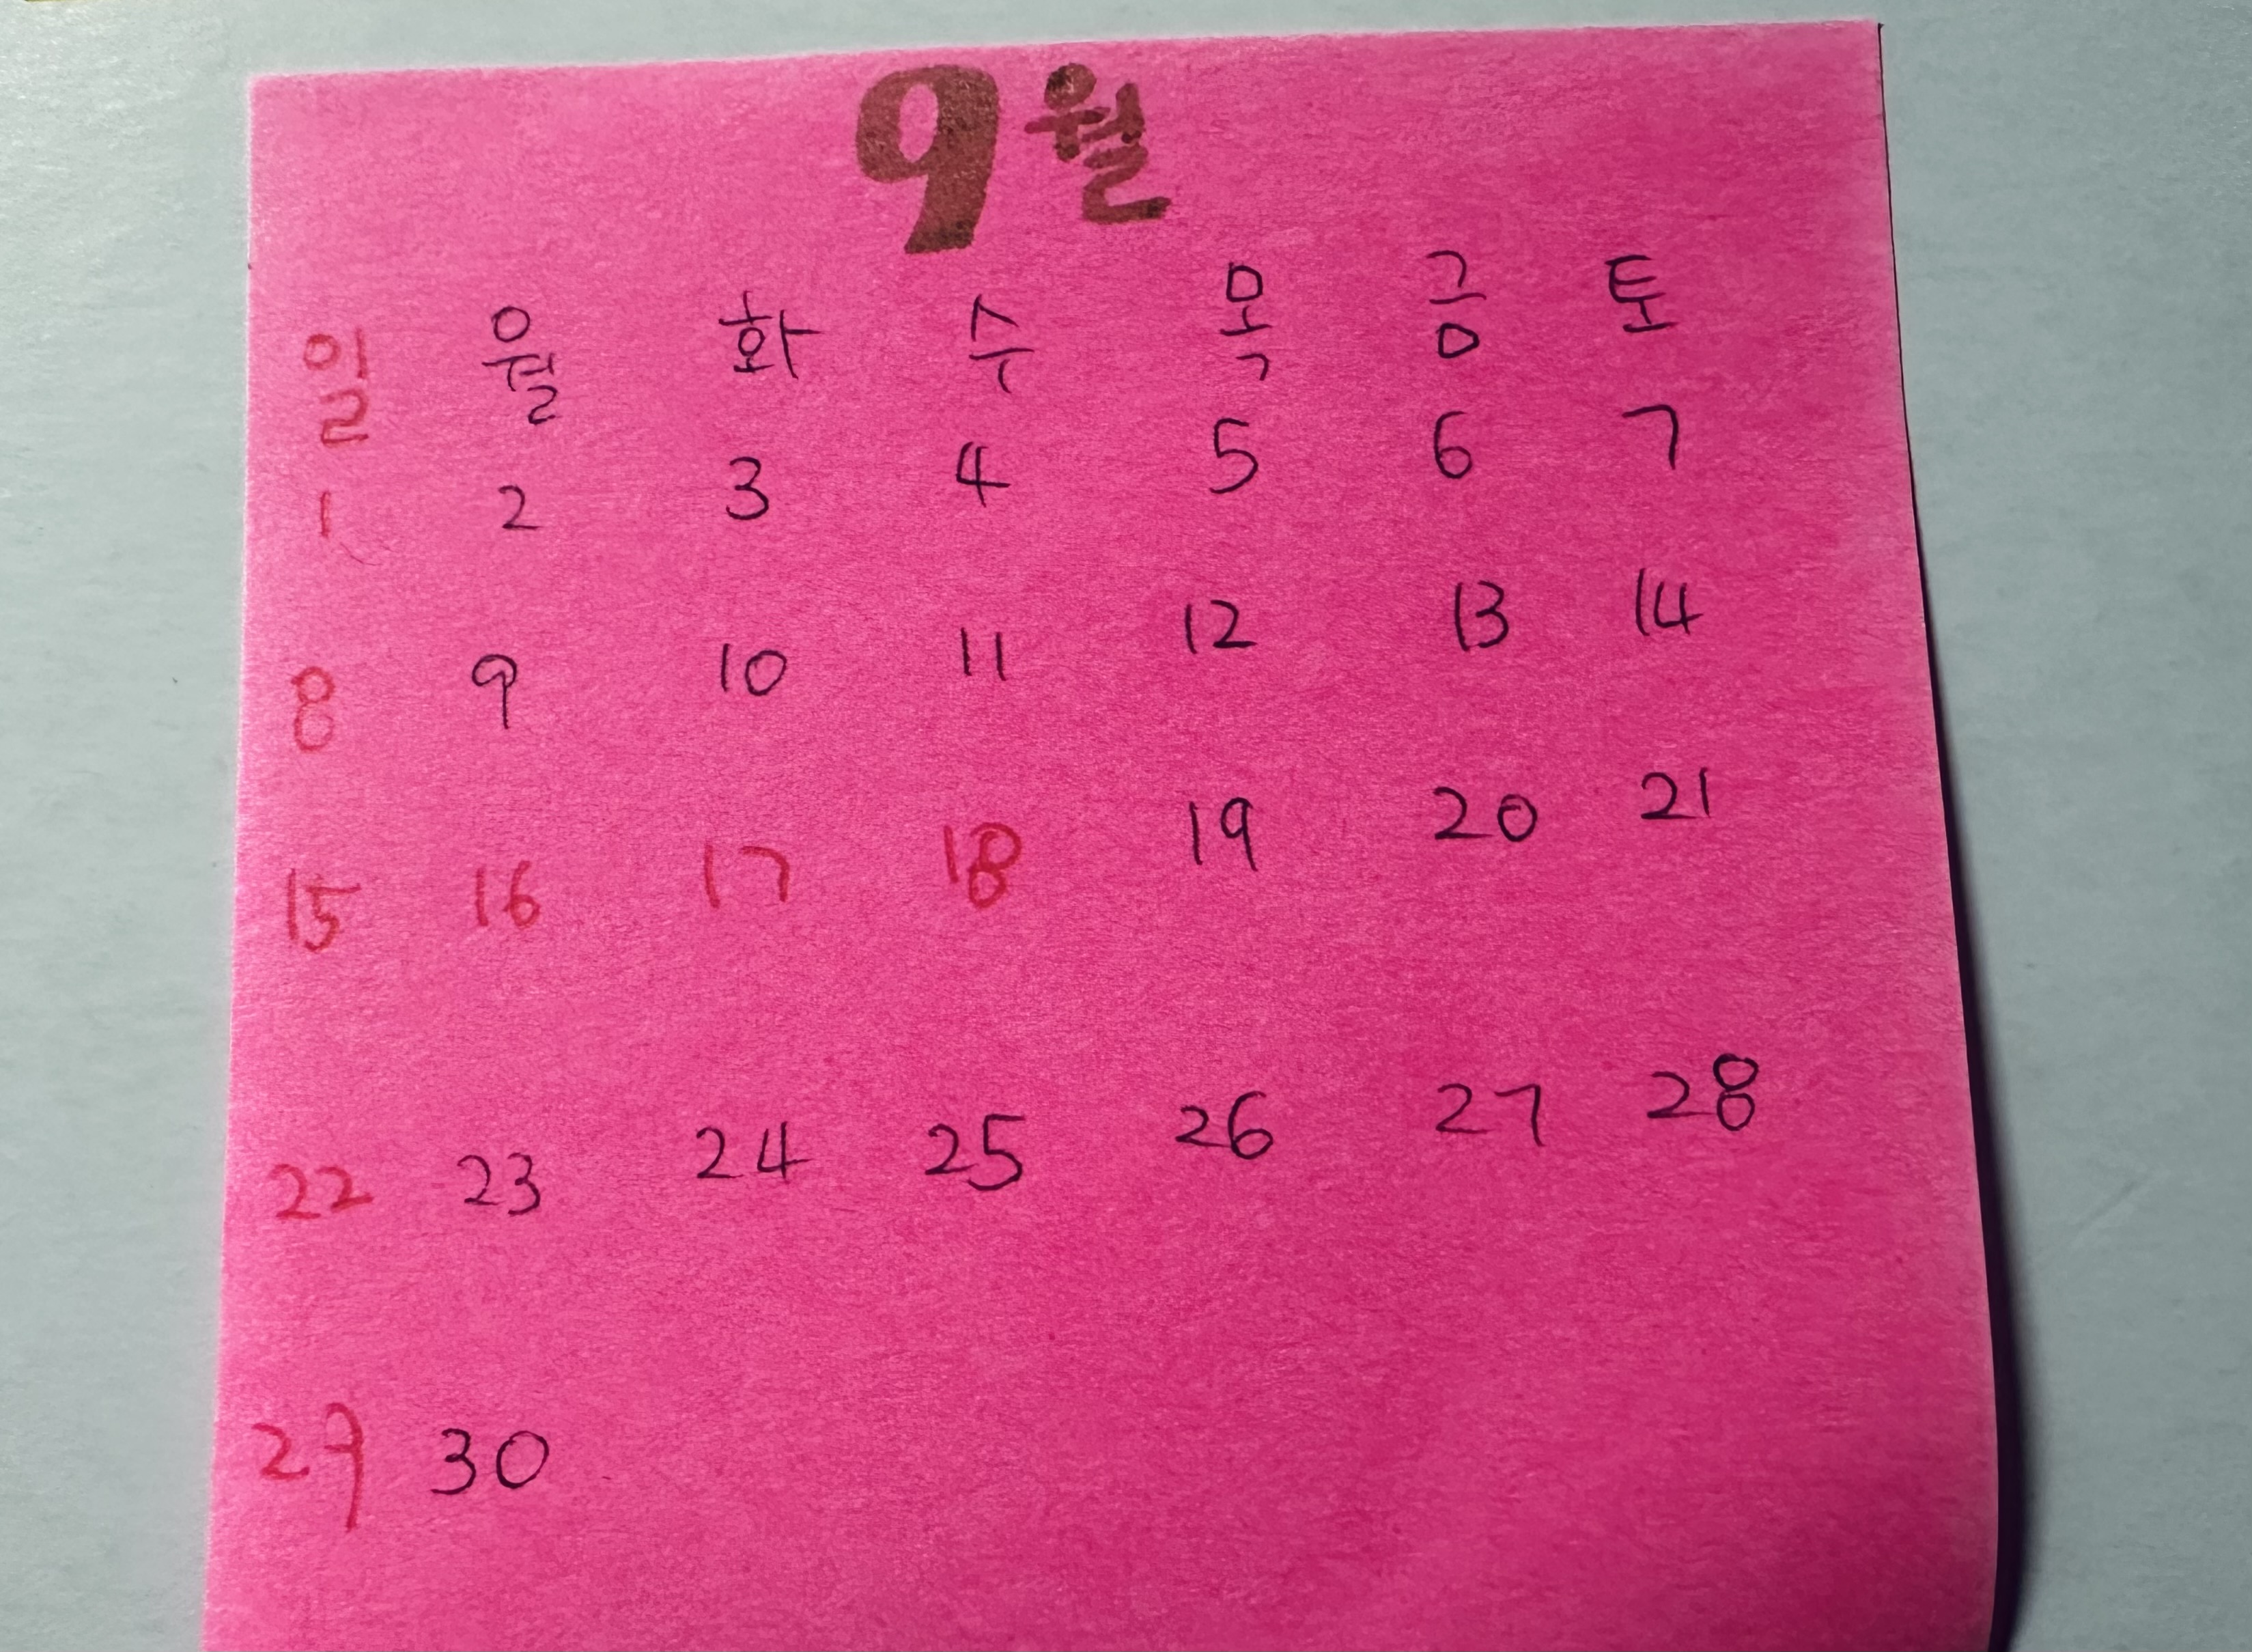 9월
일 월 화 수 목 금 토
1 2 3 4 5 6 7
8 9 10 11 12 13 14
15 16 17 18 19 20 21
22 23 24 25 26 27 28
29 30